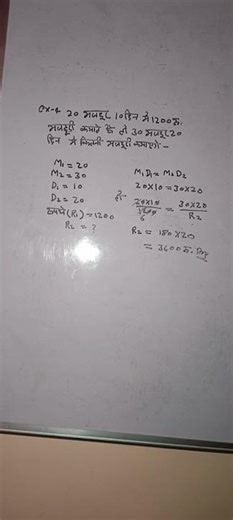 Ex-4 20 मजदूर 10 दिन में 1200 रु.
मजदूरी कमाते है तो 30 मजदूर 20
दिन में कितनी मजदूरी कमाएंगे -
M₁ = 20
M₂ = 30
D₁ = 10
D₂ = 20
रुपये (R₁) = 1200
R₂ = ?
M₁D₁ = M₂D₂
20×10 = 30×20
20×10 / 1200 = 30×20 / R₂
6
R₂ = 180×20
= 3600 रु.